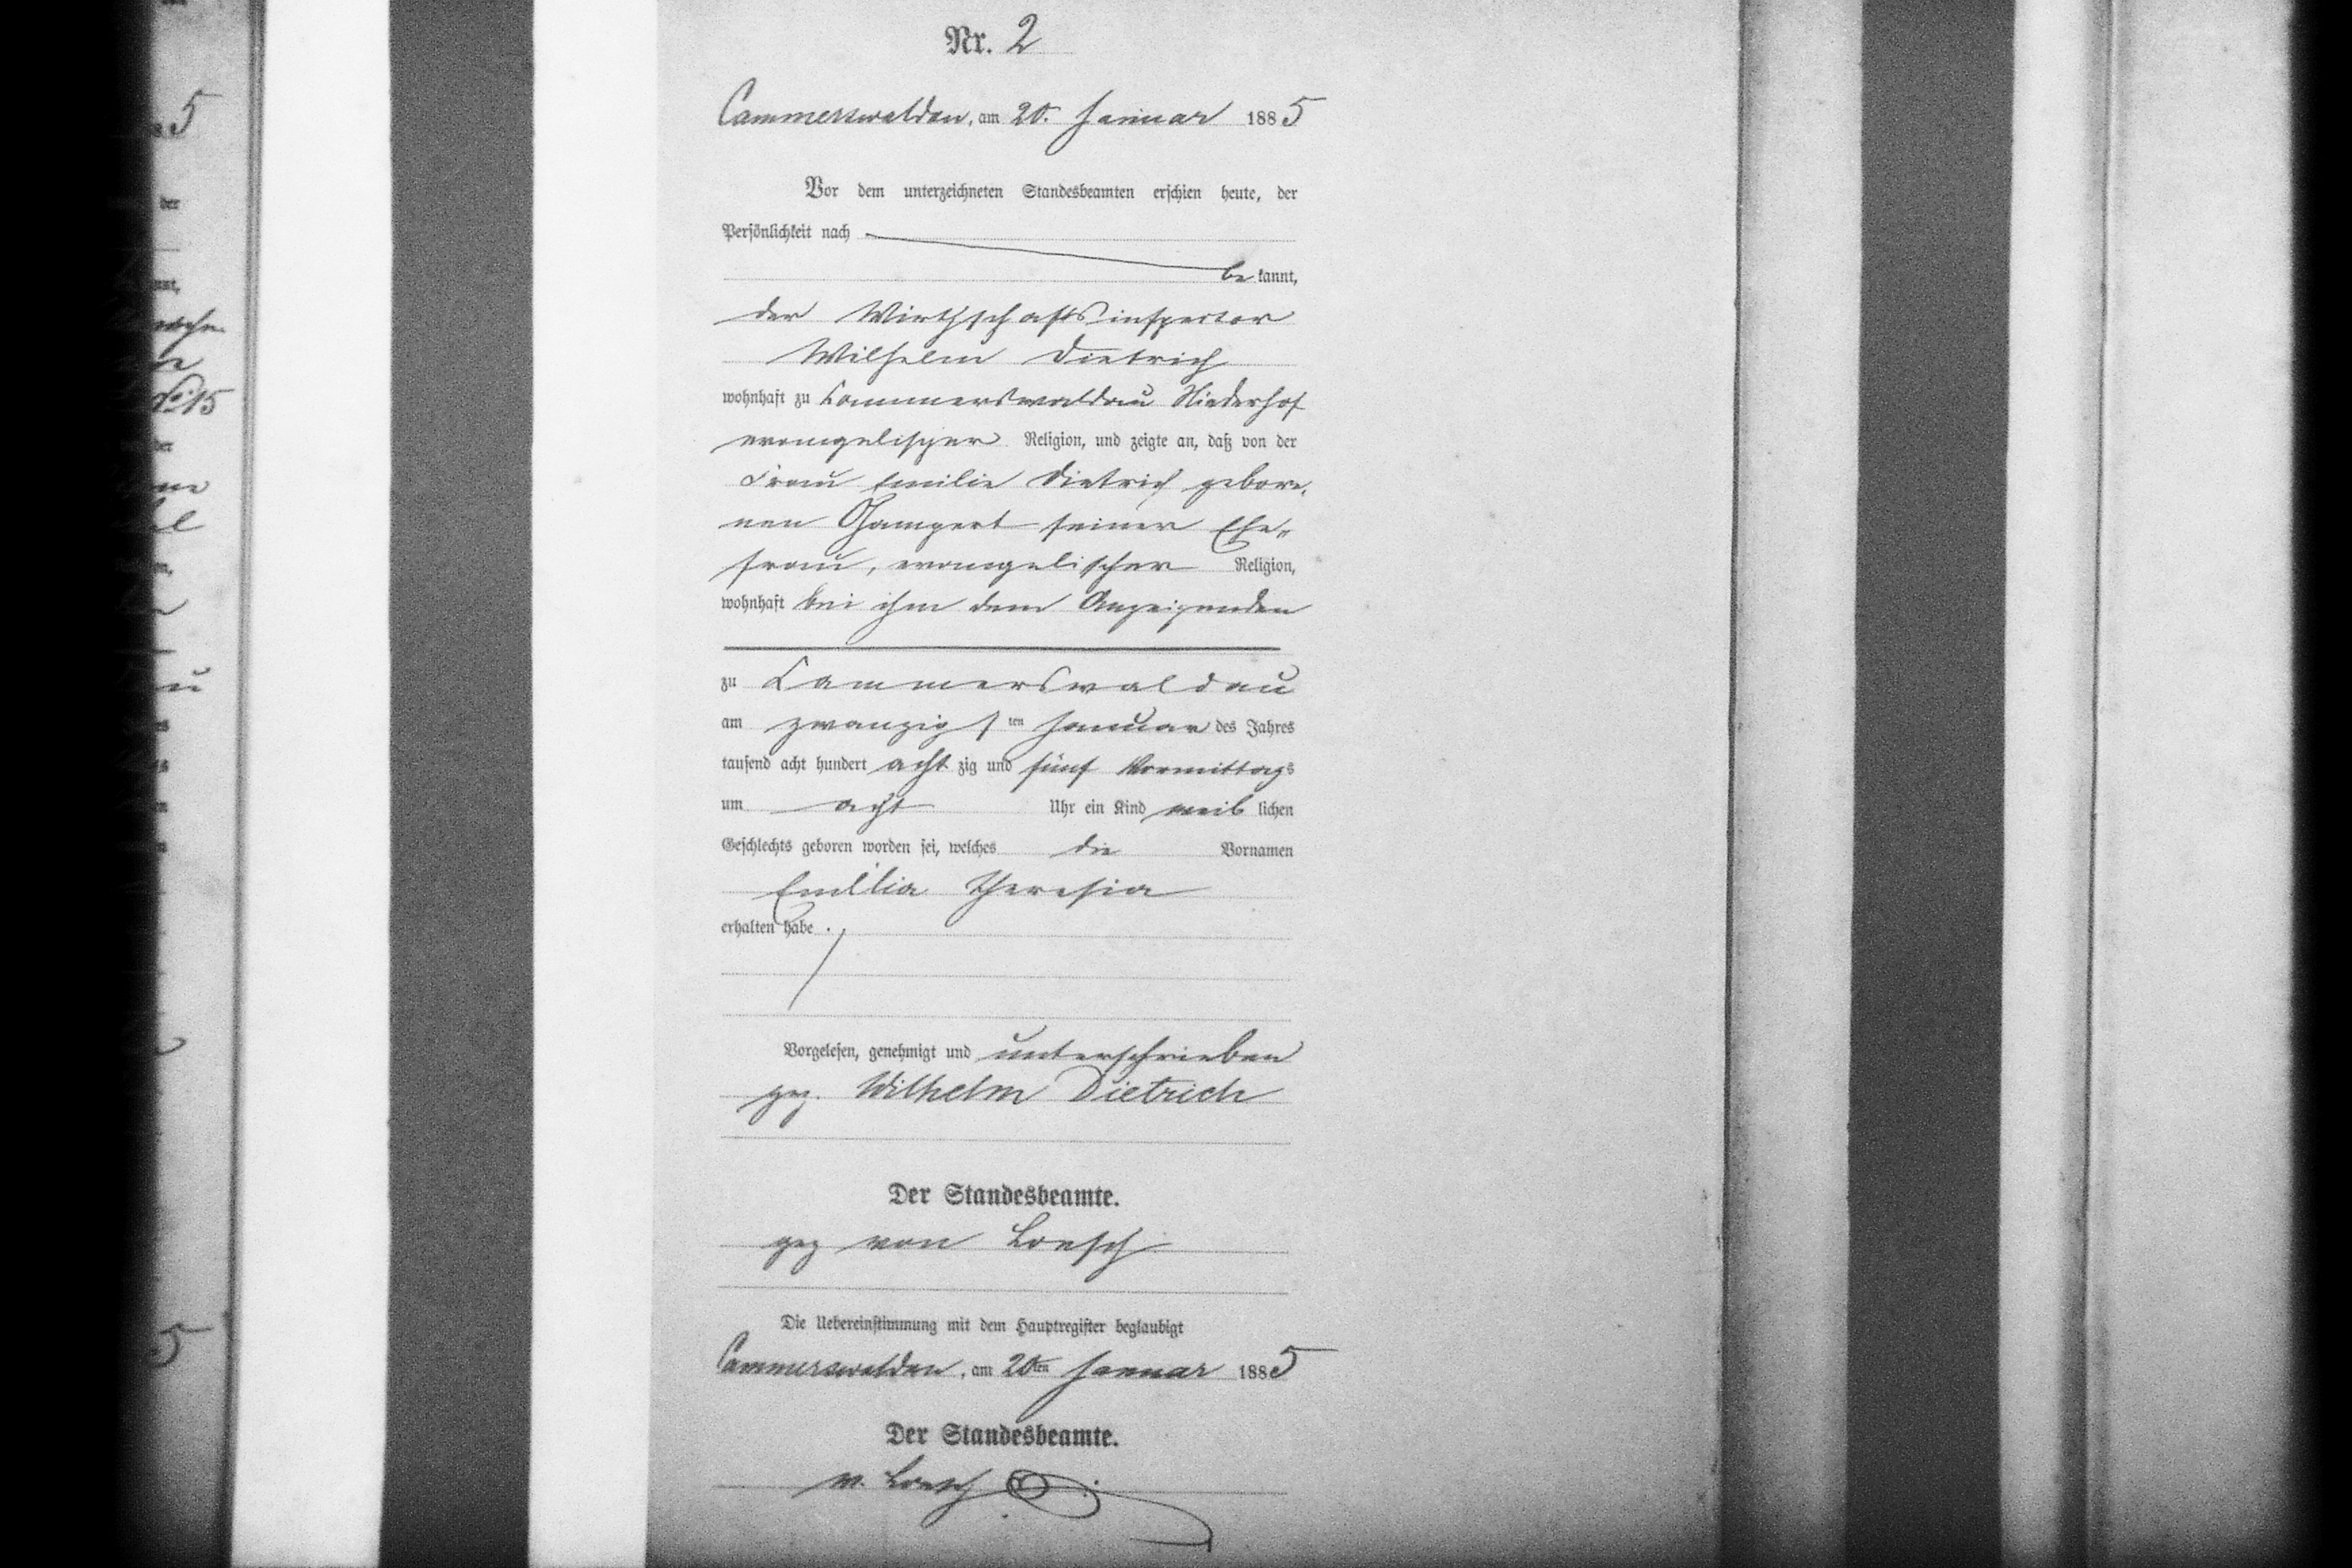 Nr. 2
Cammerswaldau, am 20. Januar 1885
Vor dem unterzeichneten Standesbeamten erschien heute, der
Persönlichkeit nach
be kannt,
der Wirthschaftsinspector
Wilhelm Dietrich
wohnhaft zu Cammerswaldau Niederhof
evangelischer Religion, und zeigte an, daß von der
Frau Emilie Dietrich gebore,
nen Gampert seiner Ehe„
frau, evangelischer Religion,
wohnhaft bei ihm dem Anzeigenden
zu Cammerswaldau
am zwanzigsten Januar des Jahres
tausend acht hundert acht zig und fünf Vormittags
um acht Uhr ein Kind weib lichen
Geschlechts geboren worden sei, welches die Vornamen
Emilia Theresia
erhalten habe.
Vorgelesen, genehmigt und unterschrieben
gez. Wilhelm Dietrich
Der Standesbeamte.
gez von Loesch
Die Uebereinstimmung mit dem Hauptregister beglaubigt
Cammerswaldau, am 20ten Januar 1885
Der Standesbeamte.
v. Loesch